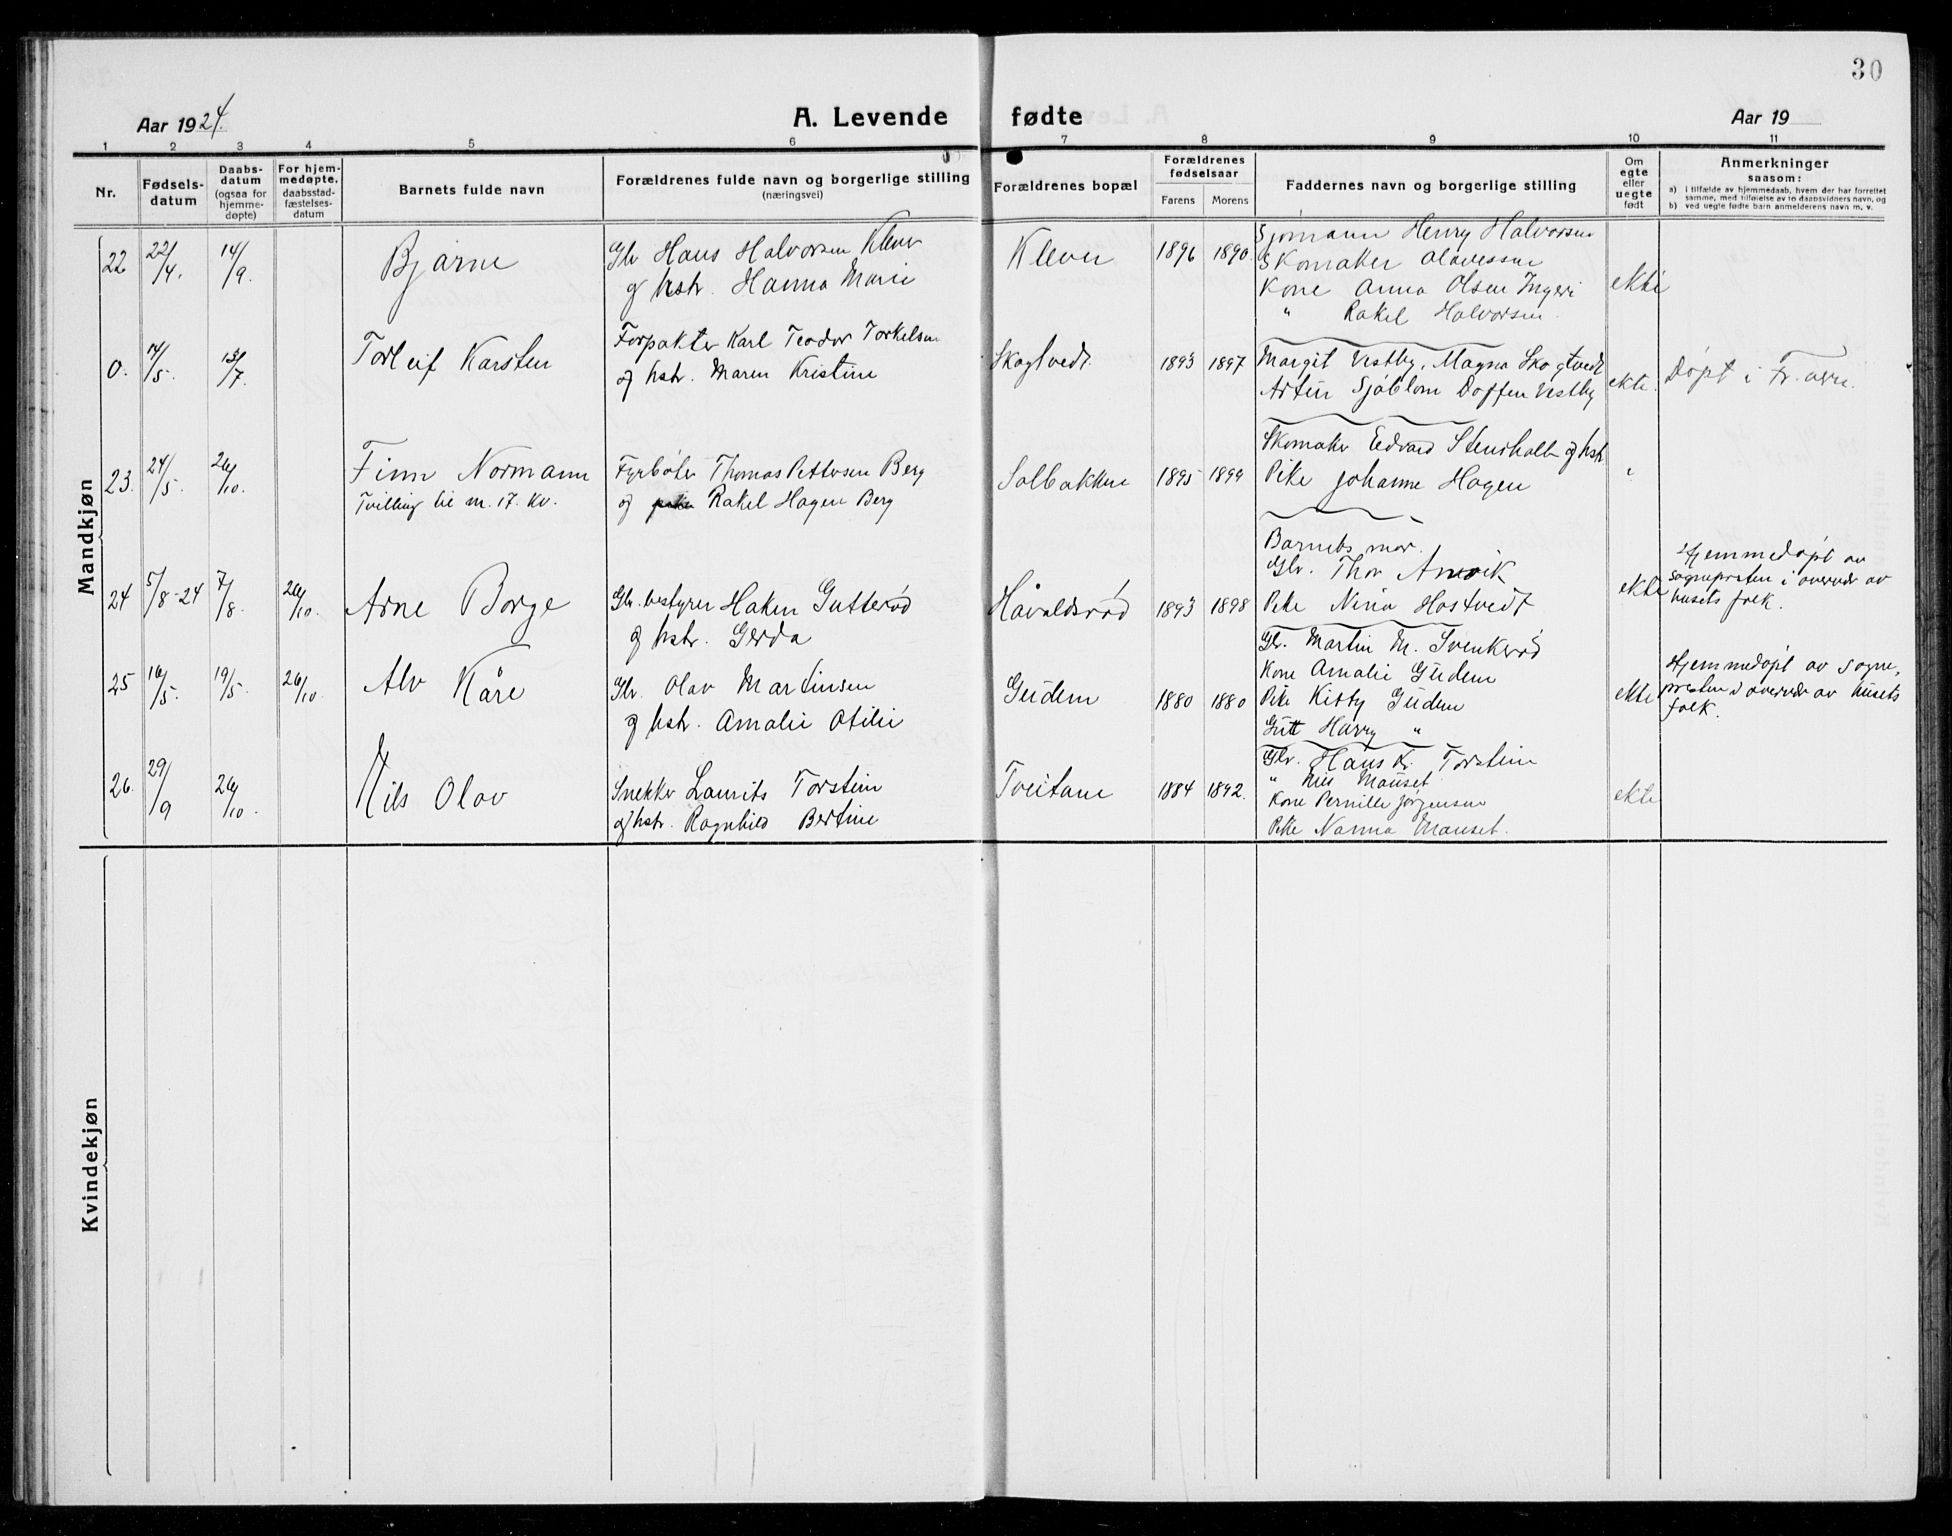 30
Aar 1924.
A. Levende fødte
Aar 19
1 2 3 4 5 6 7 8 9 10 11
Nr.
Fødsels-
datum
Daabs-
datum
(ogsaa for
hjemme-
døpte)
For hjem-
medøpte,
daabsstad-
fæstelses-
datum
Barnets fulde navn
Forældrenes fulde navn og borgerlige stilling
(næringsvei)
Forældrenes bopæl
Forældrenes
fødselsaar
Farens Morens
Faddernes navn og borgerlige stilling
Om
egte
eller
uegte
født
Anmerkninger
saasom:
a) i tilfælde av hjemmedaab, hvem der har forrettet
samme, med tilføielse av to daabsvidners navn, og
b) ved uegte fødte barn anmelderens navn m. v.
Mandkjøn
22 22/4. 14/9. Bjarne
Gbr Hans Halvorsen Klever
og hstr. Hanna Marie
Klever 1896 1890.
Sjømann Henry Halvorsen
Skomaker Olavessen
Kone Anna Olsen Ingeri
" Rakel Halvorsen.
ekte
0. 14/5. 13/7. Torleif Karsten
Forpakter Karl Teodor Torkelsen
og hstr. Maren Kristine
Skogtvedt 1893 1897
Margit Vestby, Magna Skogtvedt
Artur Sjøblom Doffen Vestby
ekte. Døpt i Fr.
23. 24/5. 26/10. Finn Normann
Tvilling til m. 17. kv.
Fyrbøter Thomas Pettersen Berg
og Rakel Hagen Berg
Solbakken 1895 1899
Skomaker Edvard Stensholt og hstr.
Pike Johanne Hagen
"
24 5/8-24 7/8. 26/10. Arne Borge
Gbr. bestyrer Haken Gutterød
og hstr. Gerda
Håvaldsrød 1893 1898
Barnets mor.
Gbr. Thor Amvik
Pike Nina Hostvedt
ekte
Hjemmedøpt av
sognepresten i overvær av
husets folk.
25 16/5. 19/5. 26/10. Alv Kåre
Gbr. Olav Martinsen
og hstr. Amalie Otilie
Gudem 1880 1880
Gbr. Martin M. Svenkerød
Kone Amalie Gudem
Pike Kitty Gudem
Gutt Harry "
ekte
Hjemmedøpt av sogne-
presten i overvær av husets
folk.
26. 29/9 26/10. Nils Olav
Snekker Laurits Torstein
og hstr. Ragnhild Bertine
Tveitane 1884 1892.
Gbr. Hans Kr. Torstein
" Nils Mauset
Kone Pernille Jørgensen
Pike Nanna Mauset.
ekte
Kvindekjøn